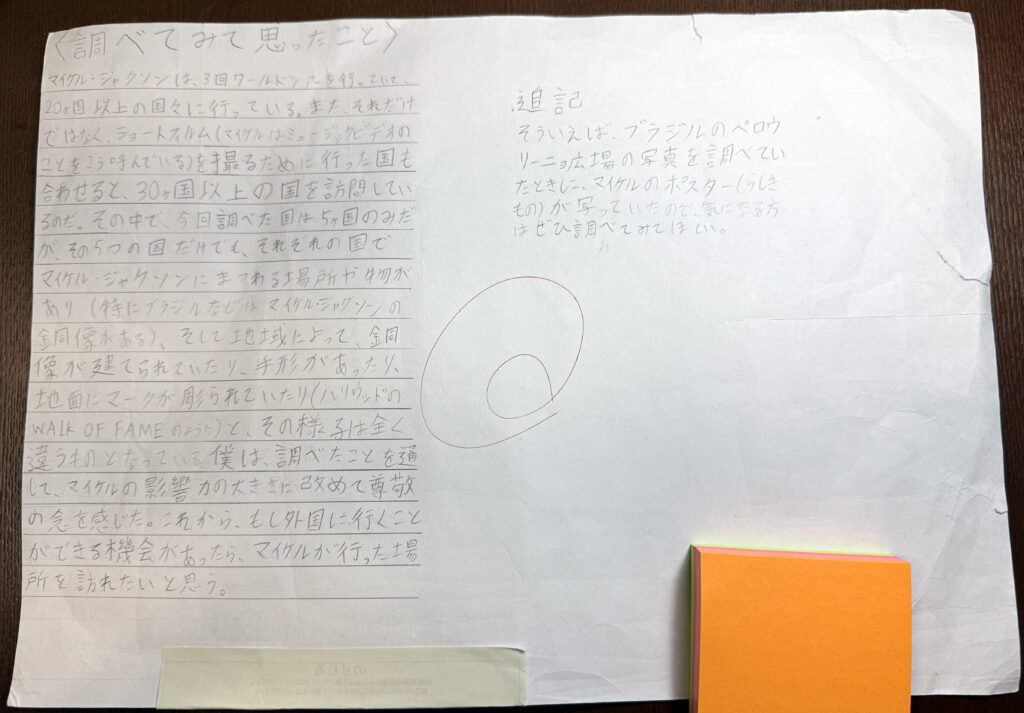 〈調べてみて思ったこと〉
マイケル・ジャクソンは、3回ワールドツアーを行っていて、
20ヶ国以上の国々に行っている。また、それだけ
ではなく、ショートフィルム(マイケルはミュージックビデオの
ことをこう呼んでいる)を撮るために行った国も
合わせると、30ヶ国以上の国を訪問してい
るのだ。その中で、今回調べた国は5ヶ国のみだ
が、その5つの国だけでも、それぞれの国で
マイケル・ジャクソンにまつわる場所や物が
あり、(特にブラジルなどはマイケル・ジャクソンの
銅像がある)、そして地域によって、銅
像が建てられていたり、手形があったり、
地面にマークが彫られていたり(ハリウッドの
WALK OF FAMEのように)と、その様子は全く
違うものとなっている。僕は、調べたことを通
して、マイケルの影響力の大きさに改めて尊敬
の念を感じた。これから、もし外国に行くこと
ができる機会があったら、マイケルが行った場
所を訪れたいと思う。
追記
そういえば、ブラジルのペロウ
リーニョ広場の写真を調べてい
たときに、マイケルのポスター(らしき
もの)が写っていたので、気になる方
はぜひ調べてみてほしい。
のりしろ